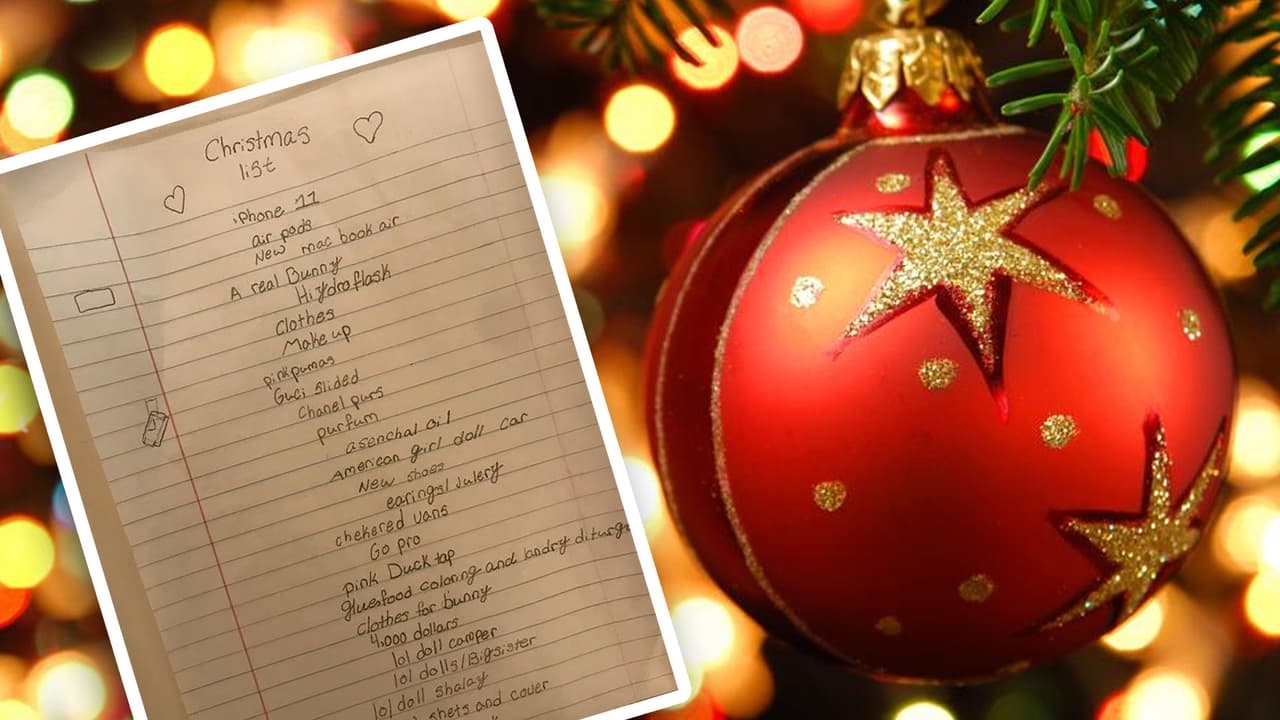 Christmas
list
iPhone 11
air pods
New mac book air
A real Bunny
Hiydroflask
Clothes
Make up
pink pumas
Guci slided
Chanel purs
purfum
asenchal oil
American girl doll car
New shoes
earings/Julery
chekered vans
Go pro
pink Duck tap
glue food coloring and landry diturge
clothes for bunny
4,000 dollars
lol doll camper
lol dolls/Bigsister
lol doll shalay
shets and cover